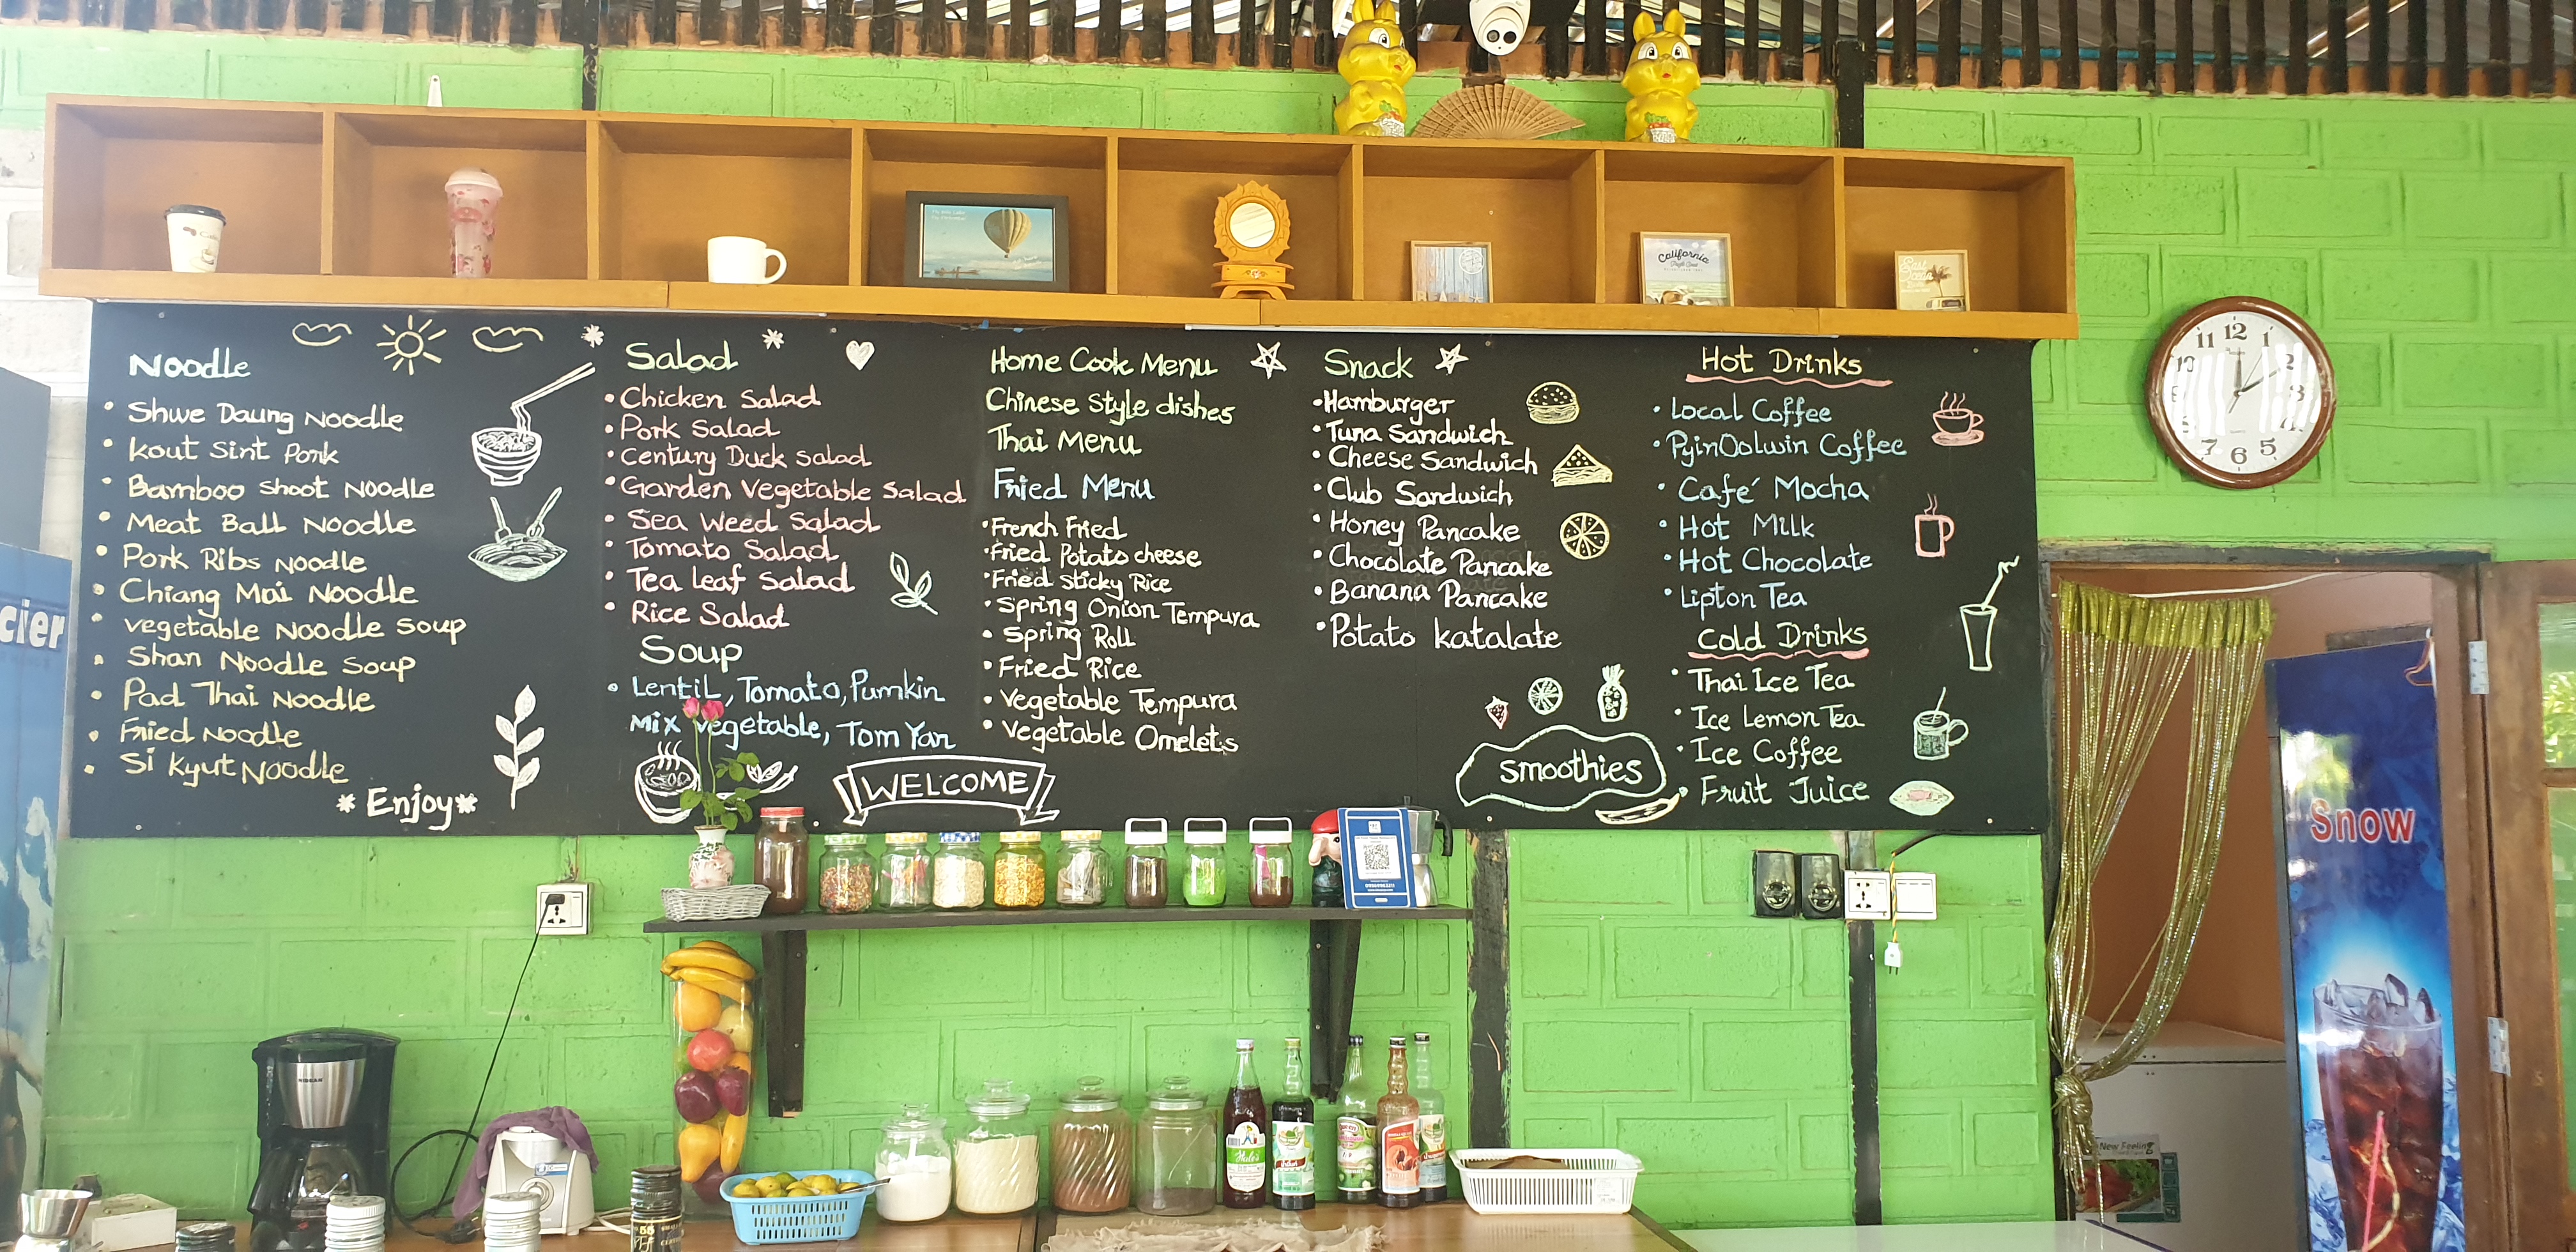 Noodle
Shwe Daung Noodle
Kout Sint Pork
Bamboo Shoot Noodle
Meat Ball Noodle
Pork Ribs Noodle
Chiang Mai Noodle
vegetable Noodle Soup
Shan Noodle Soup
Pad Thai Noodle
Fried Noodle
Si Kyut Noodle
* Enjoy *
Salad
Chicken Salad
Pork Salad
Century Duck Salad
Garden Vegetable Salad
Sea Weed Salad
Tomato Salad
Tea Leaf Salad
Rice Salad
Soup
Lentil, Tomato, Pumkin
Mix vegetable, Tom Yan
WELCOME
Home Cook Menu
Chinese Style dishes
Thai Menu
Fried Menu
French Fried
Fried Potato cheese
Fried Sticky Rice
Spring Onion Tempura
Spring Roll
Fried Rice
Vegetable Tempura
Vegetable Omelets
Snack
Hamburger
Tuna Sandwich
Cheese Sandwich
Club Sandwich
Honey Pancake
Chocolate Pancake
Banana Pancake
Potato Katalate
smoothies
Hot Drinks
Local Coffee
PyinOolwin Coffee
Café Mocha
Hot Milk
Hot Chocolate
Lipton Tea
Cold Drinks
Thai Ice Tea
Ice Lemon Tea
Ice Coffee
Fruit Juice
California
12
11
1
10
2
3
7
6
5
cier
Snow
New Feeling
Hale's